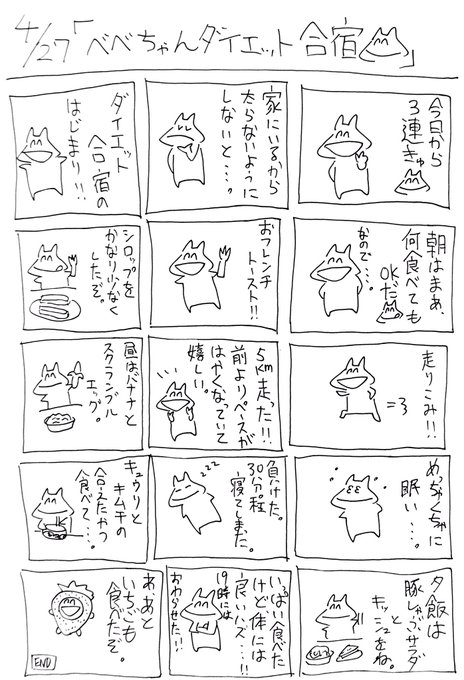 4/27「べべちゃんダイエット合宿」
今日から
3連きゅ
家にいるから
太らないように
しないと…。
ダイエット
合宿の
はじまり!!
朝はまぁ、
何食べても
OKだ
なので…。
おフレンチ
トースト!!
シロップを
かなり少なく
したぞ。
走りこみ!!
=3
5km走った!!
前よりペースが
はやくなっていて
嬉しい。
昼はバナナと
スクランブル
エッグ。
めっちゃくちゃに
眠い…。
zzz
負けた。
30分程
寝てしまった。
キュウリと
キムチの
合えたやつ
食べて…。
夕飯は
豚しゃぶサラダ
と
キッシュをね。
いっぱい食べた
けど体には
良いハズ…!!
19時には
おわらせた!!
あ、あと
いちごも
食べたぞ。
END